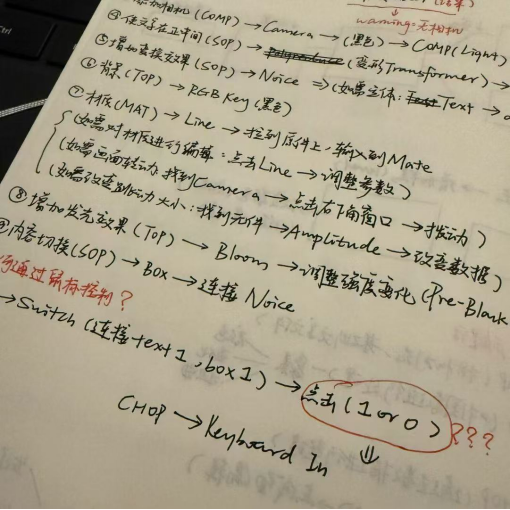 (COMP) → Camera → (黑色) → COMP(Light)
warning:无相机
④使文字在正中间(SOP) → (变形Transformer) →
⑤增加变换效果(SOP) → Noise ⇒ (如需立体: Text →
⑥背景(TOP) → RGB Key(黑色)
⑦材质(MAT) → Line → 拉到原件上,输入到Mate
(如需对材质进行编辑:点击Line → 调整参数)
(如需画面转动,找到Camera → 点击右下角窗口 → 拨动)
(如需改变跳动大小:找到元件 → Amplitude → 改变数据)
⑧增加发光效果(TOP) → Bloom → 调整强度变化(Pre-Blank
内容切换(SOP) → Box → 连接 Noice
通过鼠标控制?
→ Switch(连接text1,box1) → 点击(1 or 0) ???
CHOP → Keyboard In